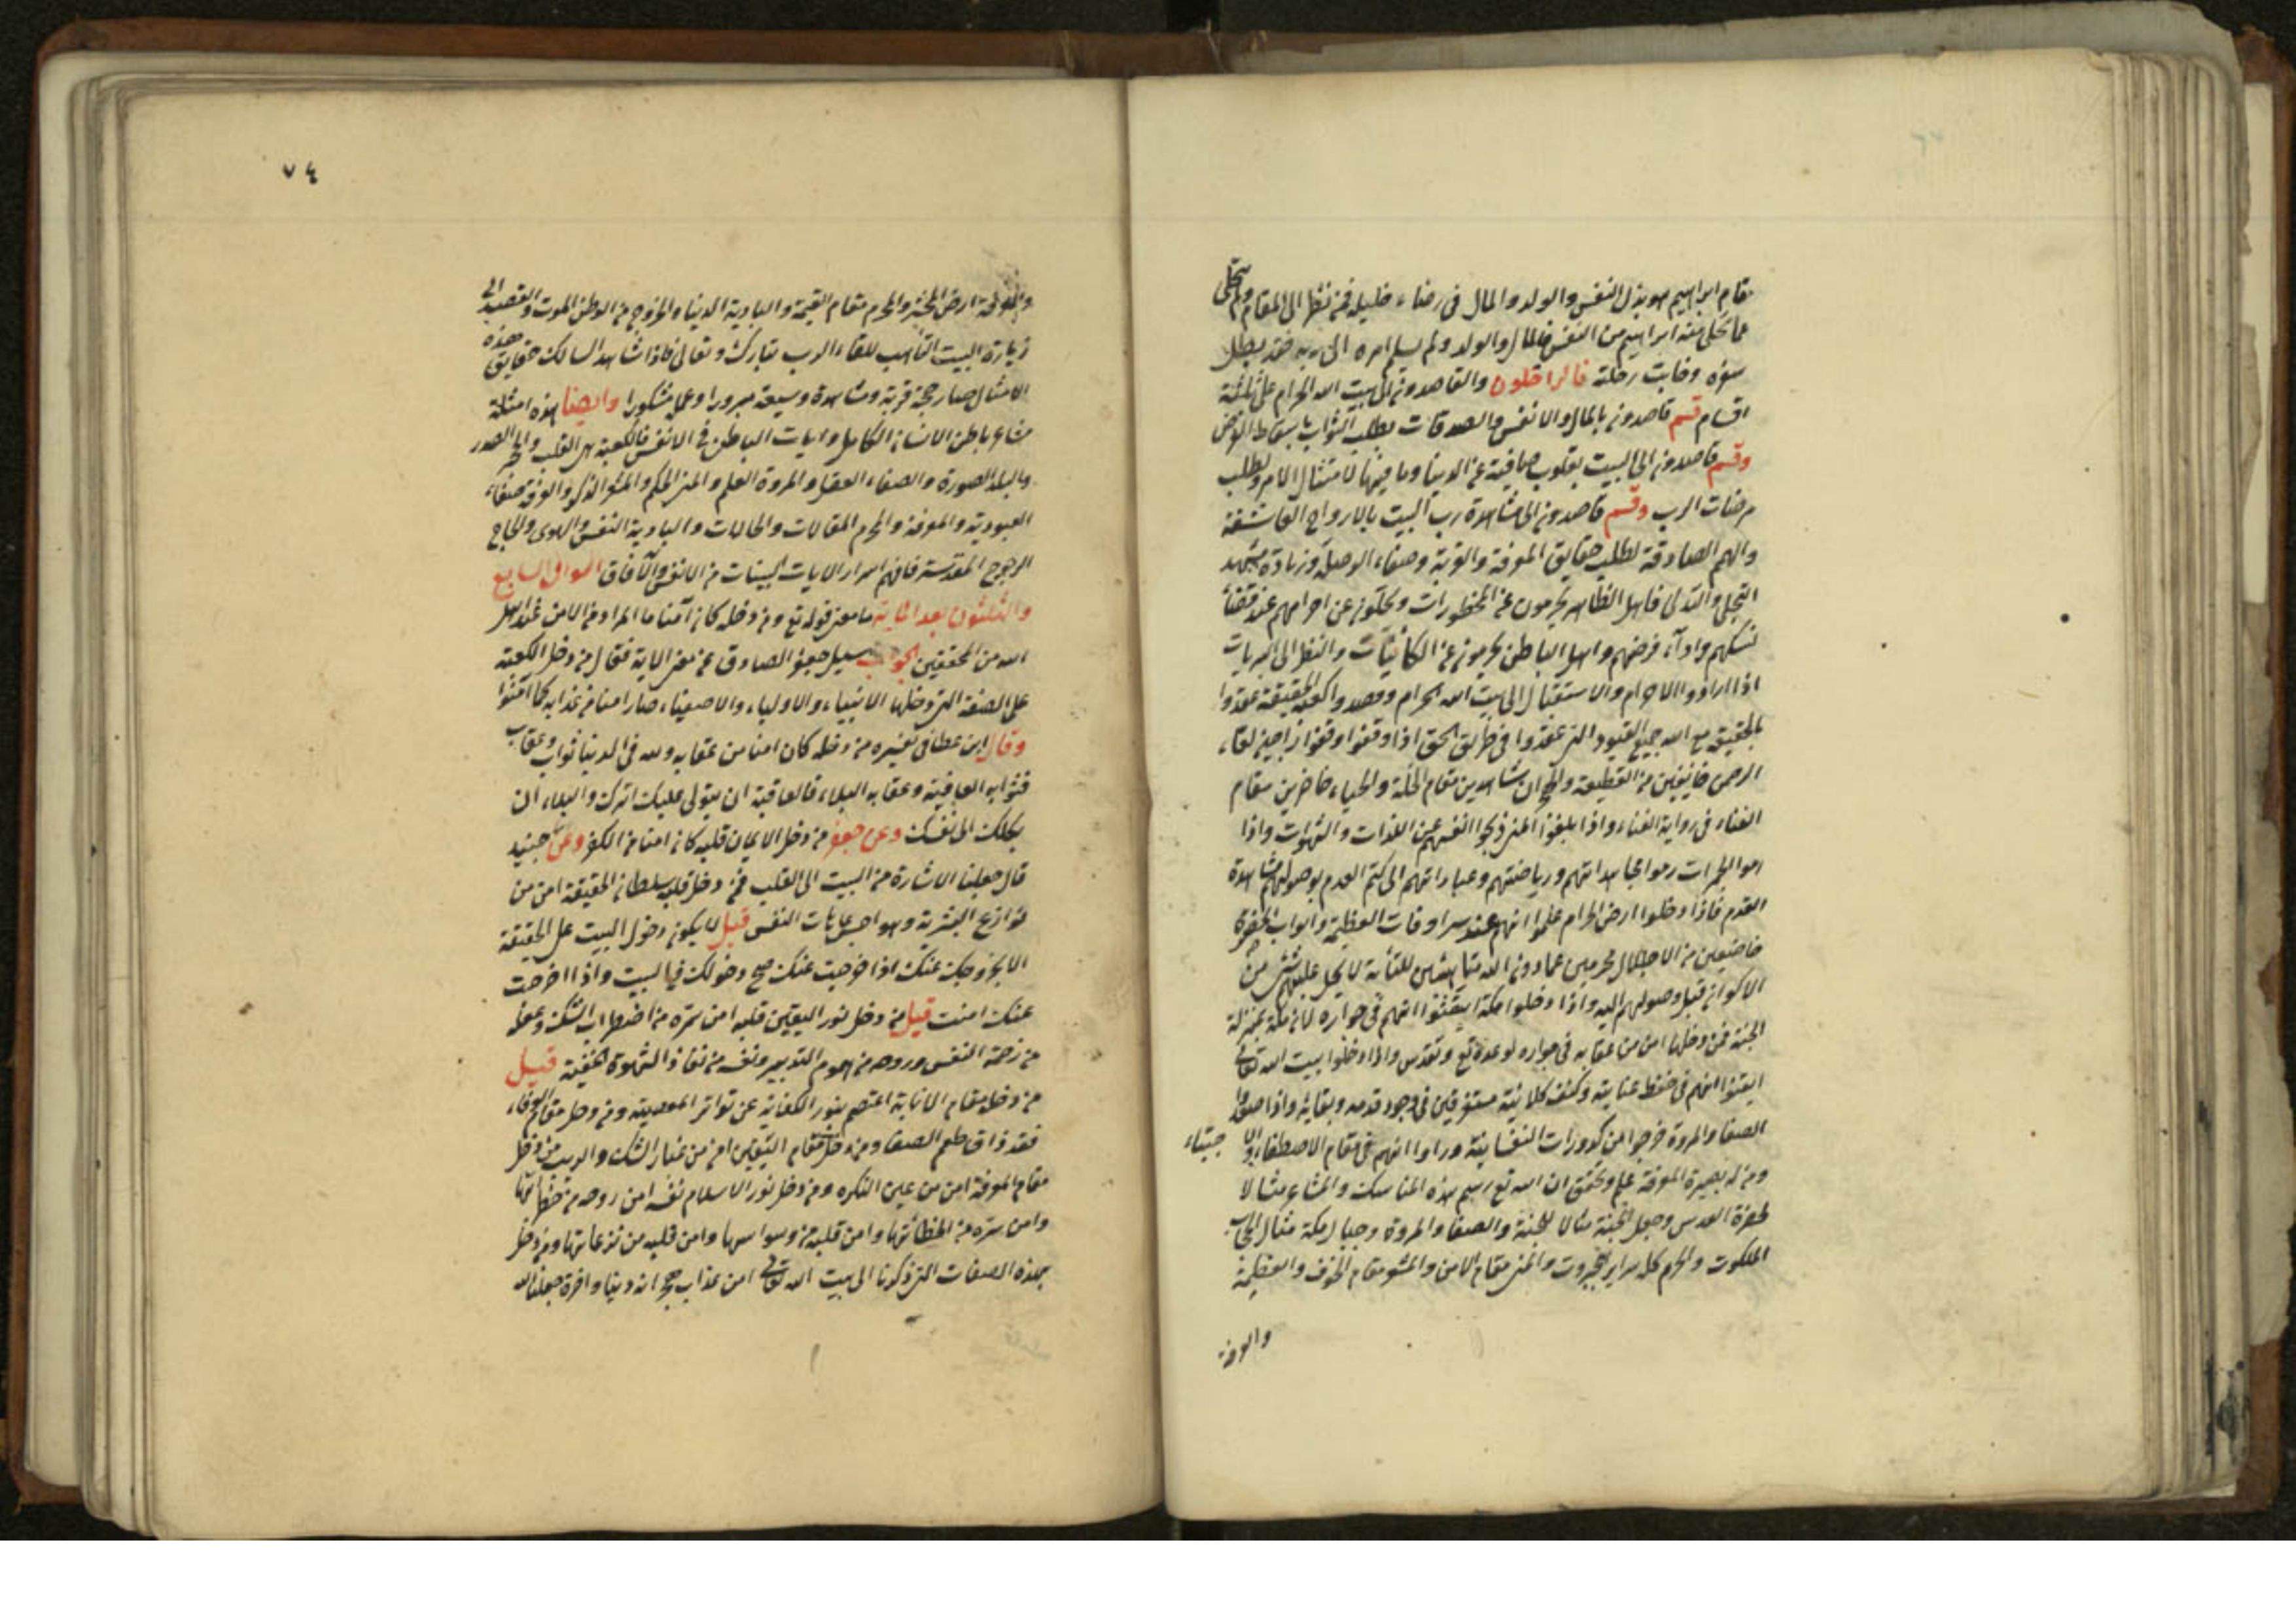 مقام ابراهيم هو بذل النفس والولد والمال فى رضاء خليله فمن نظر الى المقام ولم يتخلى
عما تخلى منه ابراهيم من النفس والمال والولد ولم يسلم امره الى ربه فقد بطل
سفره وخابت رحلته فالراحلون والقاصدون الى بيت الله الحرام على ثلثة
اقسام قسم قاصدون بالمال والانفس والصدقات يطلب الثواب باسقاط الفرض
وقسم قاصدون الى البيت بقلوب صافية عن الدنيا وما فيها لامتثال الامر وطلب
مرضات الرب وقسم قاصدون الى مشاهدة رب البيت بالارواح العاشقة
والهمم الصادقة لطلب حقايق المعرفة والقربة وصفاء الوصلة وزيادة مشهد
التجلى والتدلى فاهل الظاهر يحرمون عن المحظورات ويحلون عن احرامهم عند قضاء
نسكهم واداء فرضهم واهل الباطن يحرمون عن الكائنات والنظر الى البريات
اذا ارادوا الاحرام والاستقبال الى بيت الله الحرام وقصدوا كعبة الحقيقة عقدوا
بالحقيقة مع الله جميع العقود التى عقدوا فى طريق الحق اذا وقفوا وقفوا راجين لقاء
الرحمن خائفين من القطيعة والهجران شاهدين مقام الخلة والحياء حاضرين مقام
الفناء فى رؤاية الفناء واذا بلغوا المنى ذبحوا انفسهم عن اللذات والشهوات واذا
رموا الجمرات رموا مجاهداتهم ورياضتهم وعباداتهم الى كتم العدم بوصولهم مشاهدة
القدم فاذا دخلوا ارض الحرام علموا انهم عند سرادقات العظمة وابواب الحضرة
خاضعين من الاجلال محرمين عما دون الله متاهبين للقائه لا يحل عليهم شئ من
الاكوان قبل وصولهم اليه واذا دخلوا مكة ايقنوا انهم فى جواره لان مكة بمنزلة
الجنة فمن دخلها امن من عقابه فى جواره لوعده تع وتقدس واذا دخلوا بيت الله تعالى
ايقنوا انهم فى حفظ عنايته وكنف كلائيته مستغرقين فى وجود قدمه وبقايه واذا صعدوا
الصفا والمروة خرجوا من كدورات النفسانية وراوا انهم فى مقام الاصطفاء والاجتباء
ومن له بصيرة المعرفة علم وتحقق ان الله تع رسم هذه المناسك والمشاعر مثالا
لحضرة القدس وجعل الجنة مثالا للجنة والصفا والمروة وجبال مكة مثال الحجاب
الملكوت والحرم كل سراير الجبروت والمنى مقام الامن والمشعر مقام الخوف والعظمة
والعرفة
٧٤
والعرفة ارض المحشر والحرم مقام القيمة والبادية الدنيا والخروج من الوطن الموت والقصد الى
زيارة البيت التأهب للقاء الرب تبارك وتعالى فاذا شاهد السالك حقايق هذه
الامثال صار حجة قربة ومشاهدة وسيعه مبرورا وعمله مشكورا وايضا هذه امثلة
مشاعر باطن الانسان الكامل وايات الباطن فى الانفس فالكعبة هى القلب والحجر الصدر
والبلد الصورة والصفاء العقل والمروة العلم والمنى الحكم والمشعر الذكر والعرفة صفاء
العبودية والمعرفة والحرم المقامات والحالات والبادية النفس والهوى والحجاج
الروح المقدسة فافهم اسرار الايات البينات من الانفس والآفاق السوال السابع
والثلثون بعد المايه ما معنى قوله تع ومن دخله كان آمنا ما المراد من الامن عند اهل
الله من المحققين الجواب سيل جعفر الصادق عن معنى الاية فقال من دخل الكعبة
على الصفة التى دخلها الانبياء والاولياء والاصفياء صار امنا من عذابه كما آمنوا
وقال ابن عطا فى تفسيره من دخله كان امنا من عقابه ولله فى الدنيا ثواب وعقاب
فثوابه العافية وعقابه البلاء فالعافية ان يتولى عليك امرك والبلاء ان
يكلك الى نفسك وعن جعفر من دخل الايمان قلبه كان امنا من الكفر وعن جنيد
قال جعلنا الاشارة من البيت الى القلب فمن دخل قلبه سلطان الحقيقة امن من
نوازع البشرية وهواجس غايات النفس قيل لا يكون دخول البيت على الحقيقة
الا بخروجك عنك اذا خرجت عنك صح دخولك فى البيت واذا خرجت
عنك امنت قيل من دخل نور اليقين قلبه امن سره من اضطراب الشك وعقله
من زحمة النفس وروحه من هموم التدبير ونفسه من نفاذ الشهوة الخفية قيل
من دخل مقام الانابة اعتصم بنور الكفاية عن تواتر المعصية ومن دخل مقام الوفاء
فقد ذاق طعم الصفا ومن دخل مقام اليقين امن من غبار الشك والريب ومن دخل
مقام المعرفة امن من عين النكره ومن دخل نور الاسلام نفسه امن روحه من خطراتها
وامن سره من الخطائتها وامن قلبه من وسواسها وامن قلبه من نزعاتها ومن دخل
بهذه الصفات التى ذكرنا الى بيت الله تعالى امن عذاب هجرانه دنيا واخرة جعلنا الله